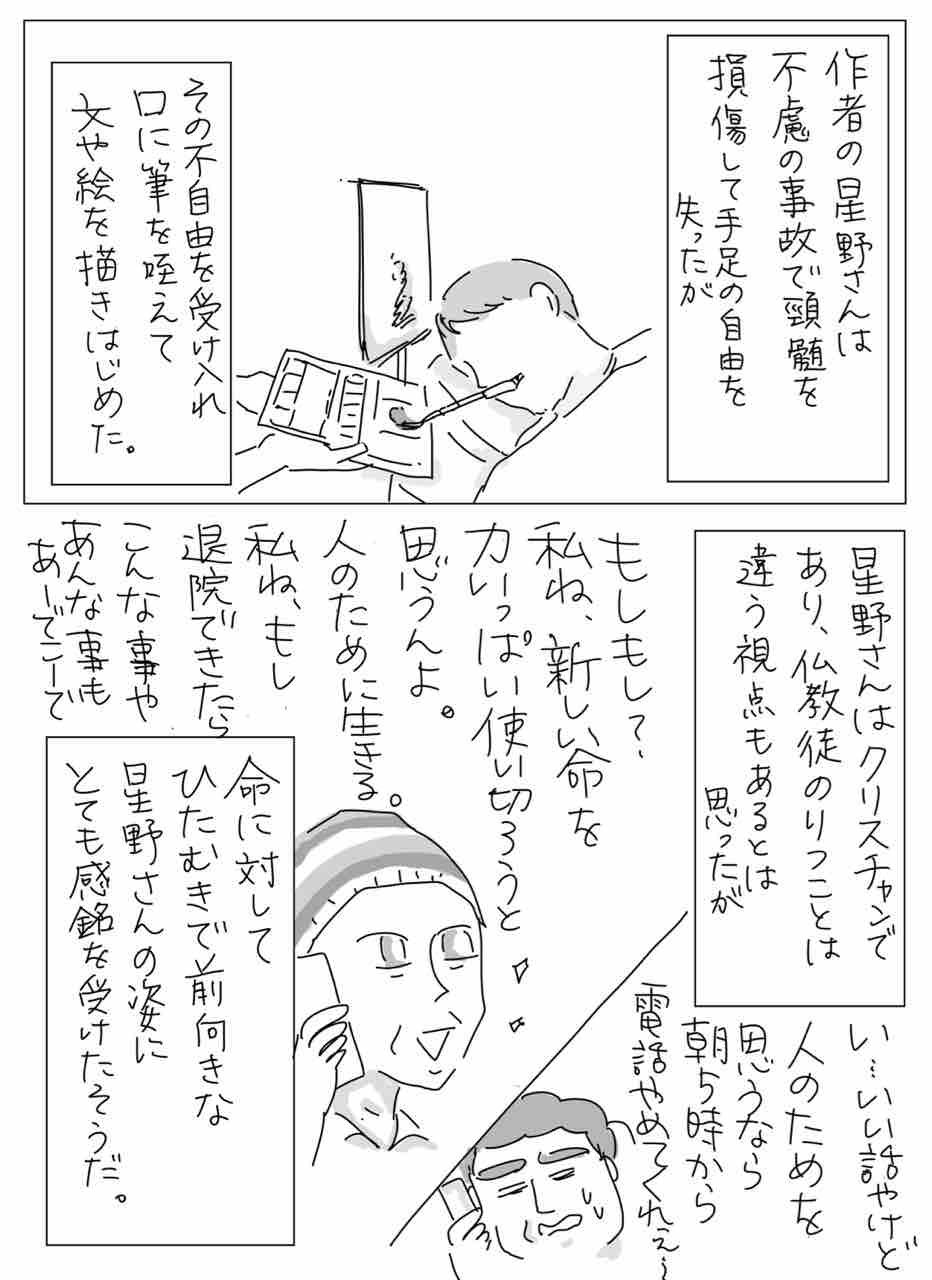 作者の星野さんは
不慮の事故で頸髄を
損傷して手足の自由を
失ったが
その不自由を受け入れ
口に筆を咥えて
文や絵を描きはじめた。
星野さんはクリスチャンで
あり、仏教徒のりつことは
違う視点もあるとは
思ったが
もしもし?
私ね、新しい命を
力いっぱい使い切ろうと
思うんよ。
人のために生きる。
私ね、もし
退院できたら
こんな事や
あんな事も
あーでこーで
命に対して
ひたむきで前向きな
星野さんの姿に
とても感銘を受けたそうだ。
い…いい話やけど
人のためを
思うなら
朝5時から
電話やめてくれぇ〜